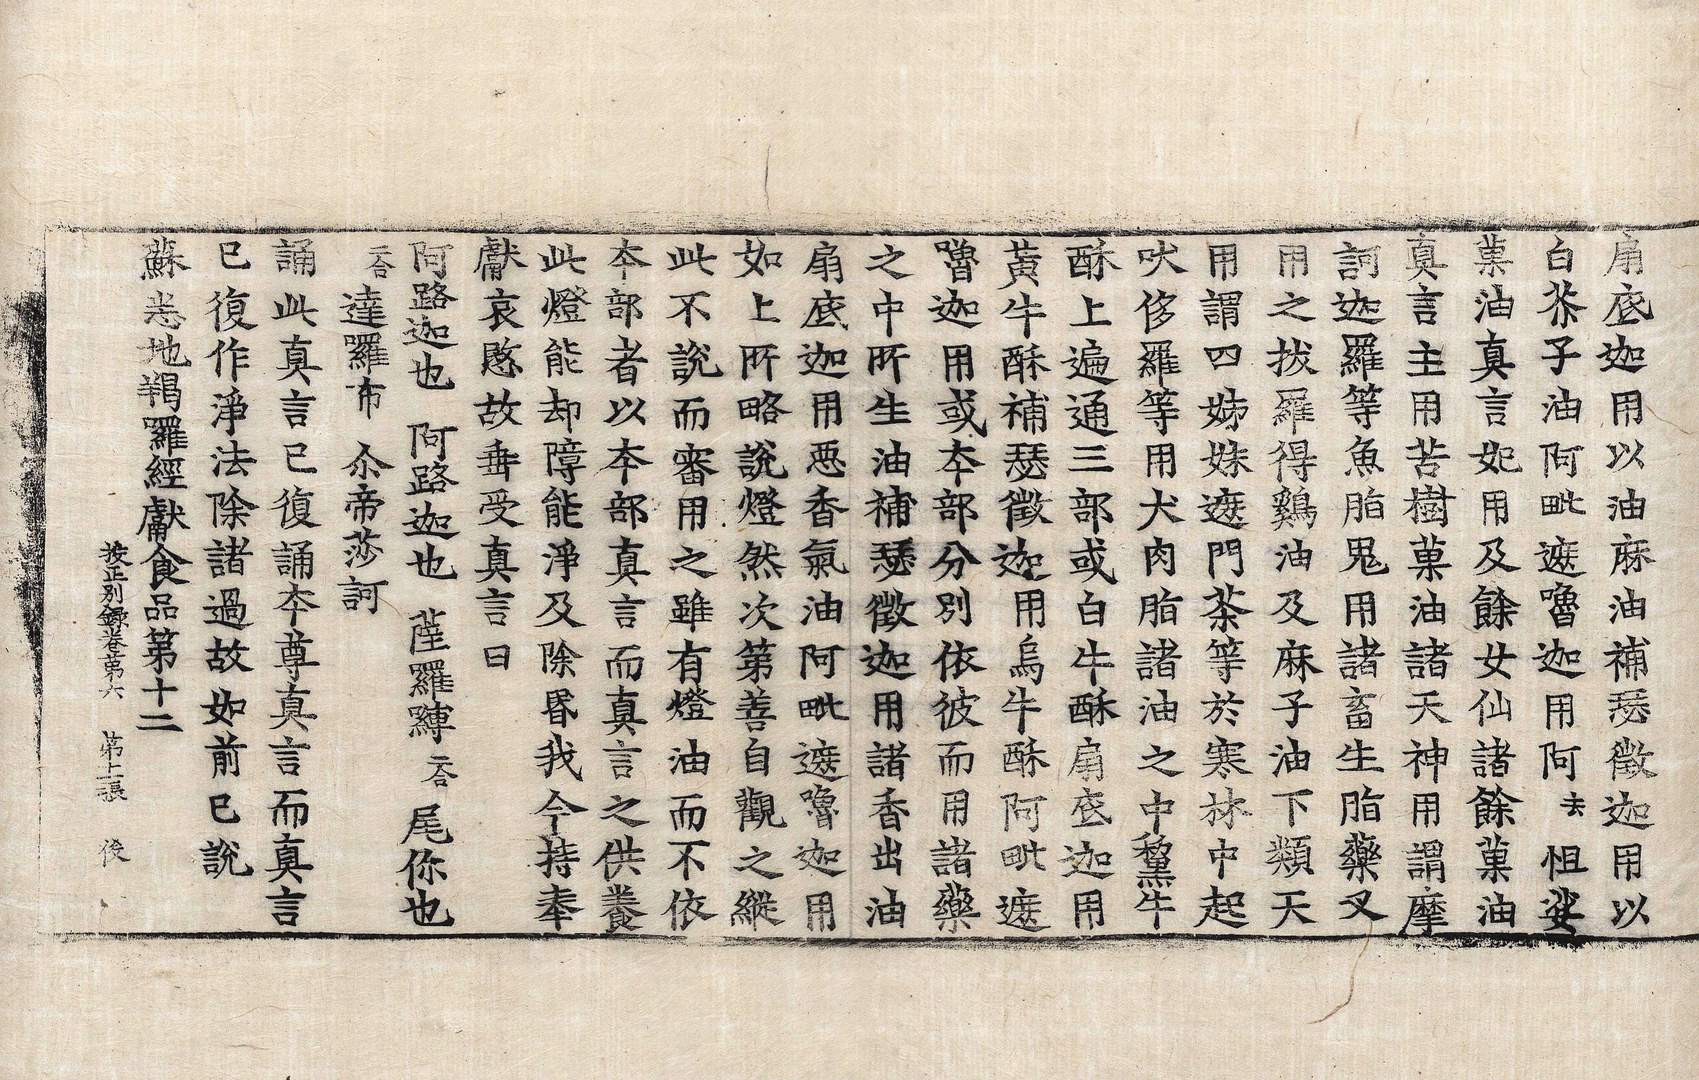 扇底迦用以油麻油補瑟徵迦用以
白芥子油阿毗遮嚕迦用阿去怛娑
菓油真言妃用及餘女仙諸餘菓油
真言主用苦樹菓油諸天神用謂摩
訶迦羅等魚脂鬼用諸畜生脂藥叉
用之拔羅得鷄油及麻子油下類天
用謂四姊妹遮門茶等於寒林中起
吠侈羅等用犬肉脂諸油之中𥠖牛
酥上遍通三部或白牛酥扇底迦用
黃牛酥補瑟徵迦用烏牛酥阿毗遮
嚕迦用或夲部分別依彼而用諸藥
之中所生油補瑟徵迦用諸香出油
扇底迦用惡香氣油阿毗遮嚕迦用
如上所略說燈然次第善自觀之縱
此不說而審用之雖有燈油而不依
夲部者以夲部真言而真言之供養
此燈能却障能淨及除昏我今持奉
獻哀愍故垂受真言曰
阿路迦也 阿路迦也 薩羅縛二合 尾你也
二合達羅布 尒帝莎訶
誦此真言已復誦夲尊真言而真言
已復作淨法除諸過故如前已說
蘇悉地羯羅經獻食品第十二
按正別錄卷第六 第七張 俊